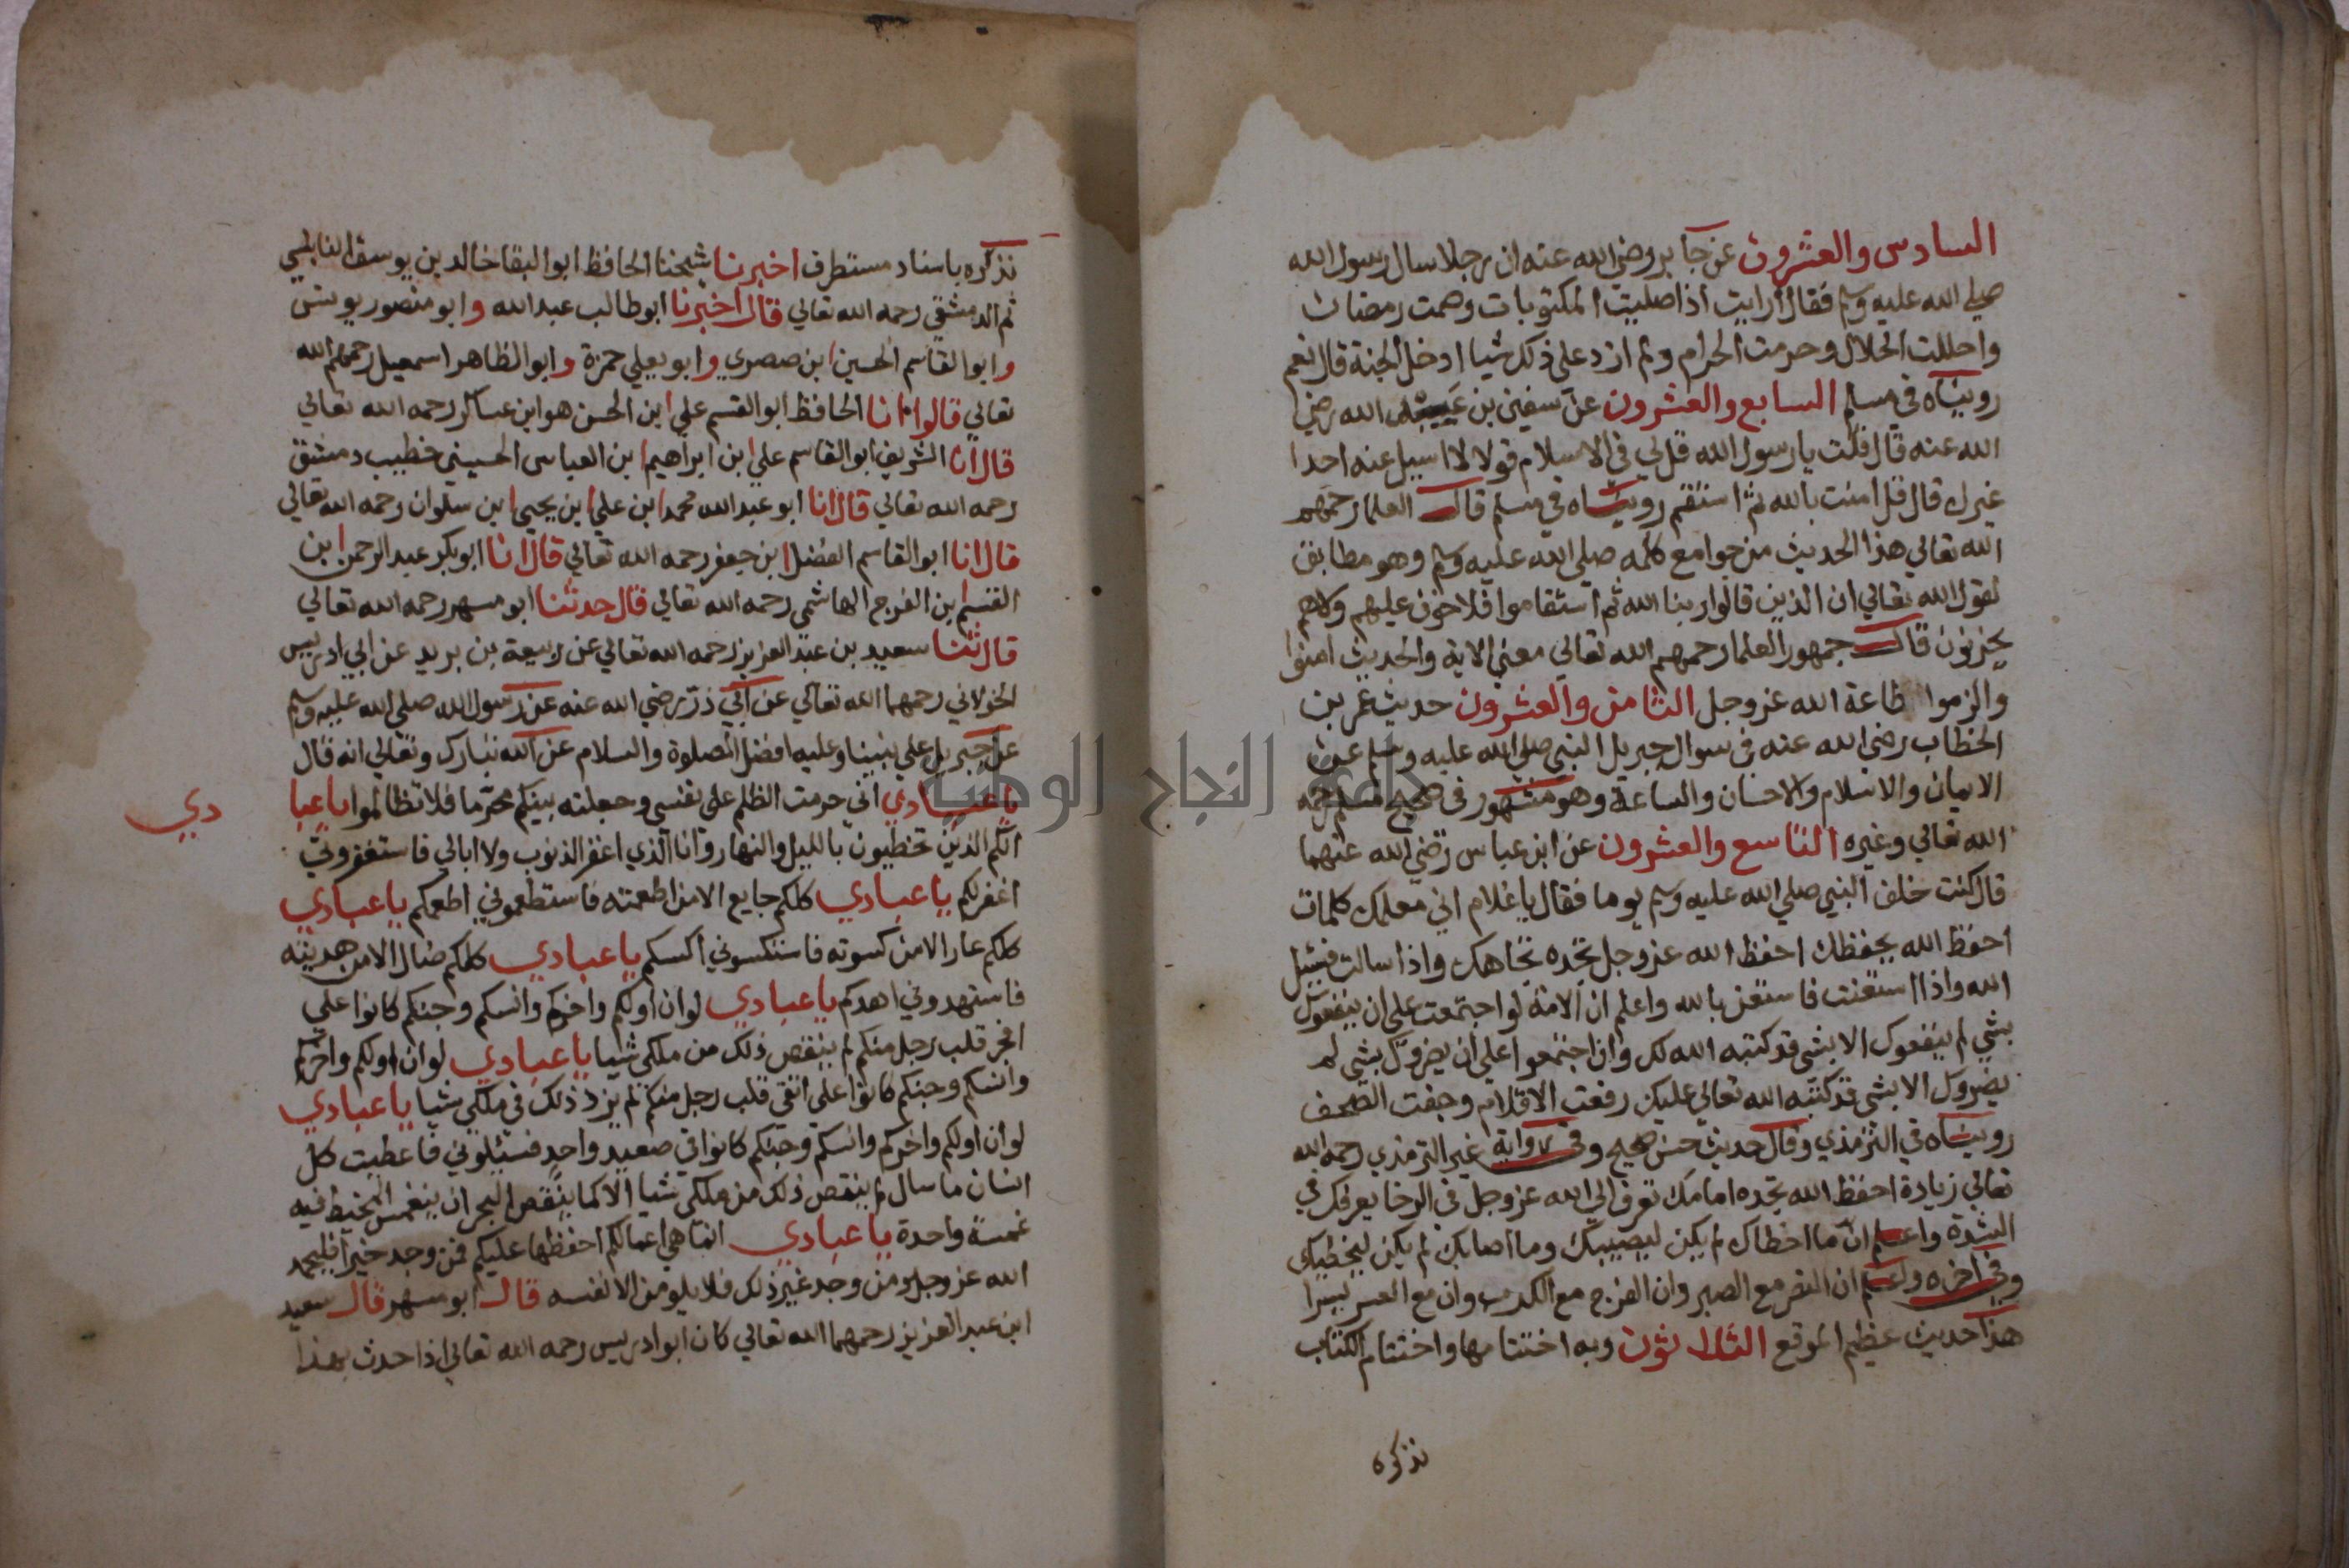 السادس والعشرون عن جابر رضي الله عنه ان رجلا سال رسول الله
صلي الله عليه وسلم فقال ارايت اذا صليت المكتوبات وصمت رمضان
واحللت الحلال وحرمت الحرام ولم ازد علي ذلك شيا ادخل الجنة قال نعم
رويناه في مسلم السابع والعشرون عن سفين بن عبد الله رضي
الله عنه قال قلت يا رسول الله قل لي في الاسلام قولا لا اسيل عنه احدا
غيرك قال قل امنت بالله ثم استقم رويناه في مسلم قال العلما رحمهم
الله تعالي هذا الحديث من جوامع كلمه صلي الله عليه وسلم وهو مطابق
لقول الله تعالي ان الذين قالوا ربنا الله ثم استقاموا فلا خوف عليهم ولاهم
يحزنون قال جمهور العلما رحمهم الله تعالي معني الاية والحديث امنوا
والزموا طاعة الله عز وجل الثامن والعشرون حديث عمر بن
الخطاب رضي الله عنه في سوال جبريل النبي صلي الله عليه وسلم عن
الايمان والاسلام والاحسان والساعة وهو مشهور في صحيح مسلم رحمه
الله تعالي وغيره التاسع والعشرون عن ابن عباس رضي الله عنهما
قال كنت خلف النبي صلي الله عليه وسلم يوما فقال يا غلام اني معلمك كلمات
احفظ الله يحفظك احفظ الله عز وجل تجده تجاهك واذا سالت فسيل
الله واذا استعنت فاستعن بالله واعلم ان الامة لو اجتمعت علي ان ينفعوك
بشي لم ينفعوك الا بشي قد كتبه الله لك وان اجتمعوا علي ان يضروك بشي لم
يضروك الا بشي قد كتبه الله تعالي عليك رفعت الاقلام وجفت الصحف
رويناه في الترمذي وقال حديث حسن صحيح وفي رواية غير الترمذي رحمه الله
تعالي زيادة احفظ الله تجده امامك تعرف الي الله عز وجل في الرخا يعرفك في
الشدة واعلم ان ما اخطاك لم يكن ليصيبك وما اصابك لم يكن ليخطيك
وفي اخره واعلم ان النصر مع الصبر وان الفرج مع الكرب وان مع العسر يسرا
هذا حديث عظيم الموقع الثلاثون وبه اختتامها واختتام الكتاب
نذكره
نذكره باسناد مستطرف اخبرنا شيخنا الحافظ ابو البقا خالد بن يوسف النابلسي
ثم الدمشقي رحمه الله تعالي قال اخبرنا ابو طالب عبد الله وابو منصور يونس
وابو القاسم الحسين ابن صصري وابو يعلي حمزة وابو الطاهر اسمعيل رحمهم الله
تعالي قالوا انا الحافظ ابو القسم علي ابن الحسن هو ابن عساكر رحمه الله تعالي
قال انا الشريف ابو القاسم علي ابن ابراهيم ابن العباس الحسيني خطيب دمشق
رحمه الله تعالي قال انا ابو عبد الله محمد ابن علي ابن يحيي ابن سلوان رحمه الله تعالي
قال انا ابو القاسم الفضل ابن جعفر رحمه الله تعالي قال انا ابو بكر عبد الرحمن ابن
القسم بن الفرج الهاشمي رحمه الله تعالي قال حدثنا ابو مسهر رحمه الله تعالي
قال ثنا سعيد بن عبد العزيز رحمه الله تعالي عن ربيعة بن يريد عن ابي ادريس
الخولاني رحمهما الله تعالي عن ابي ذر رضي الله عنه عن رسول الله صلي الله عليه وسلم
عن جبريل علي نبينا وعليه افضل الصلوة والسلام عن الله تبارك وتعالي انه قال
يا عبادي اني حرمت الظلم علي نفسي وجعلته بينكم محرما فلا تظالموا يا عبا
دي
انكم الذين تخطيون بالليل والنهار وانا الذي اغفر الذنوب ولا ابالي فاستغفروني
اغفر لكم يا عبادي كلكم جايع الا من اطعمته فاستطعموني اطعمكم يا عبادي
كلكم عار الا من كسوته فاستكسوني اكسكم يا عبادي كلكم ضال الا من هديته
فاستهدوني اهدكم يا عبادي لو ان اولكم واخركم وانسكم وجنكم كانوا علي
افجر قلب رجل منكم لم ينقص ذلك من ملكي شيا يا عبادي لو ان اولكم واخركم
وانسكم وجنكم كانوا علي اتقي قلب رجل منكم لم يزد ذلك في ملكي شيا يا عبادي
لو ان اولكم واخركم وانسكم وجنكم كانوا في صعيد واحد فسيلوني فاعطيت كل
انسان ما سال لم ينقص ذلك من ملكي شيا الا كما ينقص البحر ان ينغمس المخيط فيه
غمسة واحدة يا عبادي انما هي اعمالكم احفظها عليكم فمن وجد خيرا فليحمد
الله عز وجل ومن وجد غير ذلك فلا يلومن الا نفسه قال ابو مسهر قال سعيد
ابن عبد العزيز رحمهما الله تعالي كان ابو ادريس رحمه الله تعالي اذا حدث بهذا
جامعة النجاح الوطنية